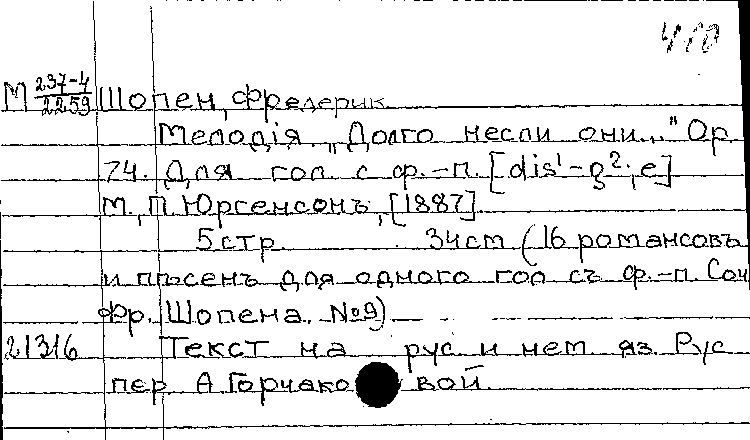 410
М 237-4/2259 Шопен, Фредерик
Мелодія „Долго несли они..." Ор.
74. Для гол. с ф.-п. [dis¹-g²; e]
М., П. Юргенсонъ, [1887]
5 стр. 34 cm (16 романсовъ
и пѣсенъ для одного гол съ ф.-п. Соч
Фр. Шопена. №9)
21316 Текст на рус и нем яз. Рус
пер А. Горчаковой